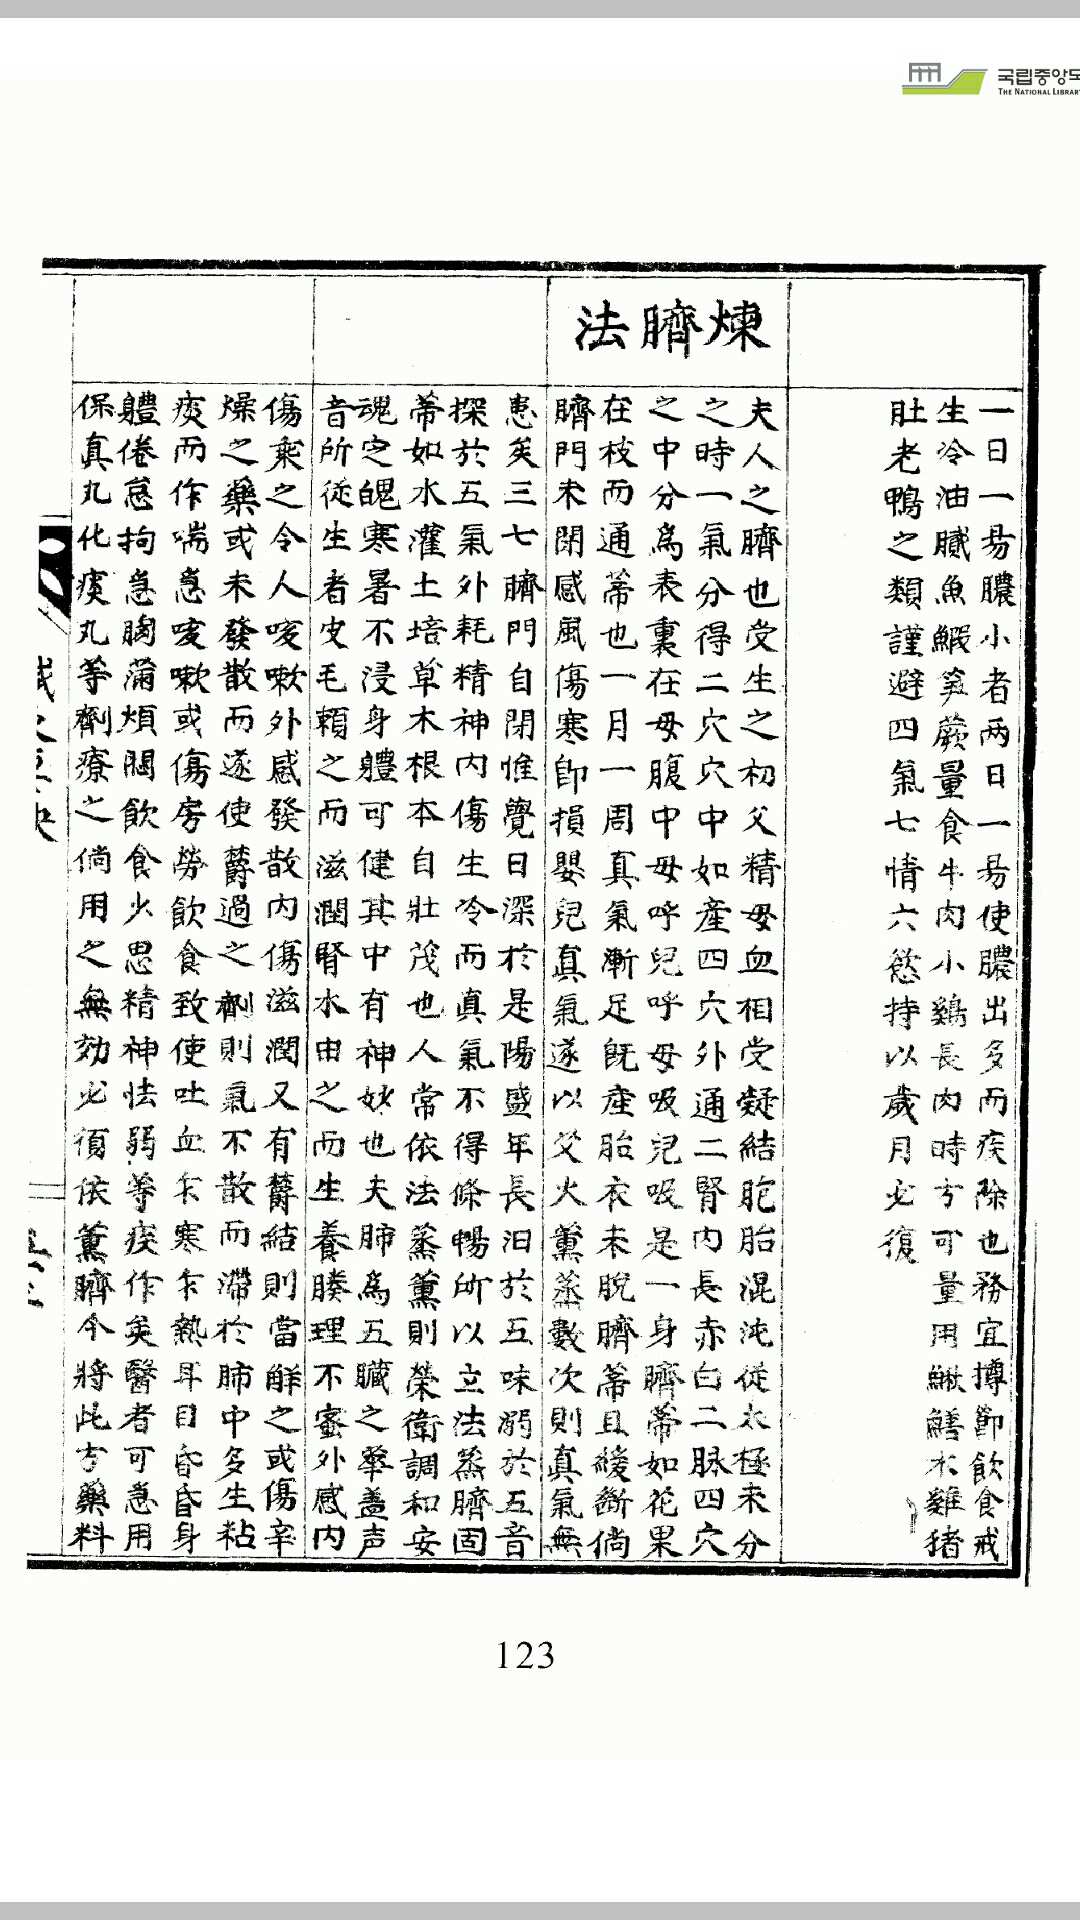 국립중앙도
THE NATIONAL LIBRARY
一日一昜膿小者两日一昜使膿出多而疾除也務宜撙節飮食戒
生冷油膩魚鰕笋蕨量食牛肉小鷄長肉時方可量用鰍鱔木雞猪
肚老鴨之類謹避四氣七情六慾持以歲月必復
煉臍法
夫人之臍也受生之初父精母血相受凝結胞胎混沌従太極未分
之時一氣分得二穴穴中如產四穴外通二腎內長赤白二脉四穴
之中分爲表裏在母腹中母呼兒呼母吸兒吸是一身臍蒂如花果
在枝而通蒂也一月一周真氣漸足既產胎衣未脫臍蒂且緩斷倘
臍門未閉感風傷寒卽損嬰兒真氣遂以父火薰蒸數次則真氣無
患矣三七臍門自閉惟覺日深於是陽盛年長汨於五味溺於五音
探於五氣外耗精神內傷生冷而真氣不得條暢所以立法蒸臍固
蒂如水灌土培草木根本自壯茂也人常依法蒸薰則榮衛調和安
魂定魄寒暑不浸身體可健其中有神妙也夫肺爲五臟之擧盖声
音所従生者皮毛賴之而滋潤腎水由之而生養腠理不蜜外感內
傷乘之令人咳嗽外感發散內傷滋潤又有欝結則當解之或傷辛
燥之藥或未發散而遂使欝過之劑則氣不散而滯於肺中多生粘
痰而作喘急咳嗽或傷房勞飮食致使吐血乍寒乍熱耳目昏昏身
軆倦怠拘急胸滿煩悶飮食少思精神怯弱等疾作矣醫者可急用
保真丸化痰丸等劑療之倘用之無効必須依薰臍今將此方藥料
123